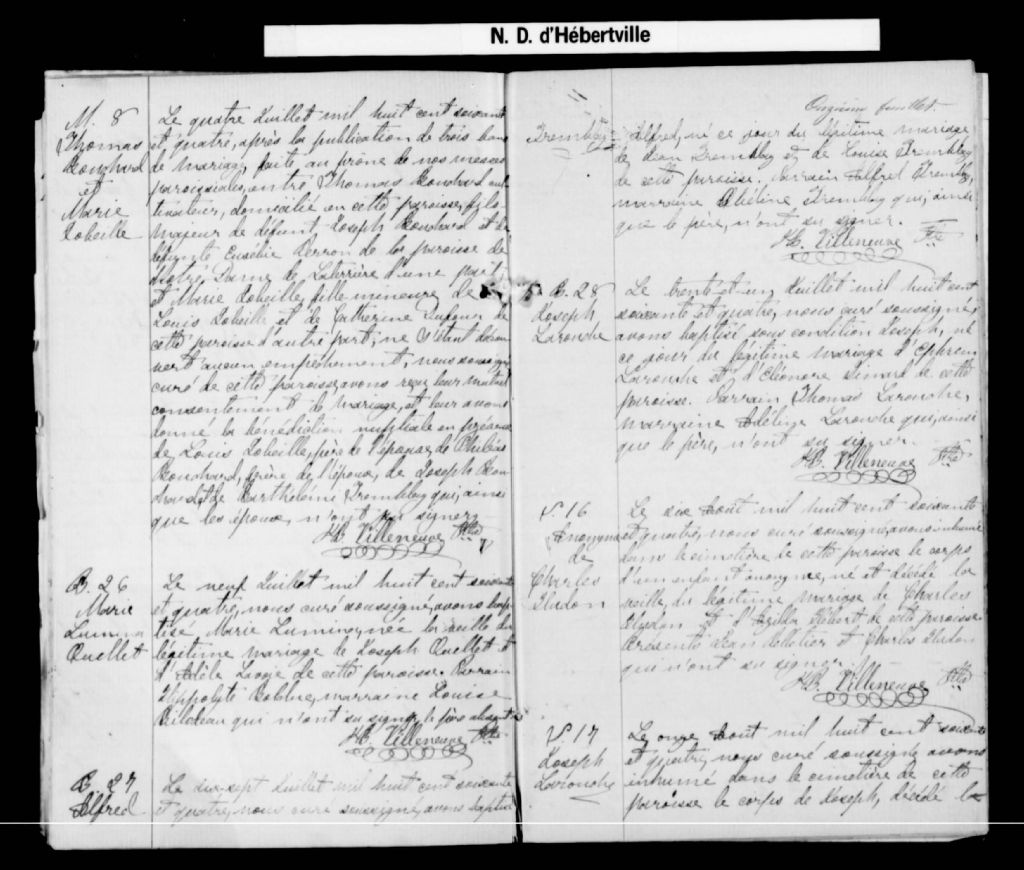 N. D. d'Hébertville
M. 8
Thomas
Bouchard
et
Marie
Lobeille
Le quatre Juillet mil huit cent soixante
et quatre, après la publication de trois bans
de mariage, faite au prone de nos messes
paroissiales, entre Thomas Bouchard cul-
tivateur, domicilié en cette paroisse, fils
majeur de défunt Joseph Bouchard et de
défunte Eusébie Perron de la paroisse de
Notre Dame de Laterrière d'une part;
et Marie Lobeille, fille mineure, de
Louis Lobeille et de Catherine Dufour de
cette paroisse d'autre part; ne s'étant décou-
vert aucun empêchement, nous soussigné
curé de cette paroisse, avons reçu leur mutuel
consentement de mariage, et leur avons
donné la bénédiction nuptiale en présence
de Louis Lobeille, père de l'épouse, de
Bouchard, frère de l'époux, de Joseph Bou-
chard et de Barthelémie Tremblay qui, ainsi
que les époux, n'ont su signer.
H.B. Villeneuve Ptre
B. 26
Marie
Lumina
Ouellet
Le neuf Juillet mil huit cent soixante
et quatre, nous curé soussigné, avons bap-
tisé, Marie Lumina, née la veille du
légitime mariage de Joseph Ouellet et
d'Adèle Lavoie de cette paroisse. Parrain
Hippolyte Boblue, marraine Louise
Bilodeau qui n'ont su signer, le père absent
H.B. Villeneuve Ptre
B. 27
Alfred
Le dix-sept Juillet mil huit cent soixante
et quatre, nous curé soussigné, avons baptisé
11
Onzième feuillet
Tremblay
Alfred, né ce jour du légitime mariage
de Jean Tremblay et de Louise Tremblay
de cette paroisse. Parrain Alfred Tremblay,
marraine Tremblay qui, ainsi
que le père, n'ont su signer.
H.B. Villeneuve Ptre
B. 28
Joseph
Larouche
Le trente-et-un Juillet mil huit cent
soixante et quatre, nous curé soussigné,
avons baptisé sous condition Joseph, né
ce jour du légitime mariage d'Ephrem
Larouche et d'Eléonore Simard de cette
paroisse. Parrain Thomas Larouche,
marraine Adéline Larouche qui, ainsi
que le père, n'ont su signer.
H.B. Villeneuve Ptre
S. 16
Anonyme
de
Charles
Hudon
Le six Aout mil huit cent soixante
et quatre, nous curé soussigné, avons inhumé
dans le cimetière de cette paroisse le corps
d'un enfant anonyme, né et décédé la
veille, du légitime mariage de Charles
Hudon et d'Azilda Hébert de cette paroisse.
Présents Jean Pelletier et Charles Hudon
qui n'ont su signer.
H.B. Villeneuve Ptre
S. 17
Joseph
Larouche
Le onze Aout mil huit cent soixante
et quatre, nous curé soussigné avons
inhumé dans le cimetière de cette
paroisse le corps de Joseph, décédé le